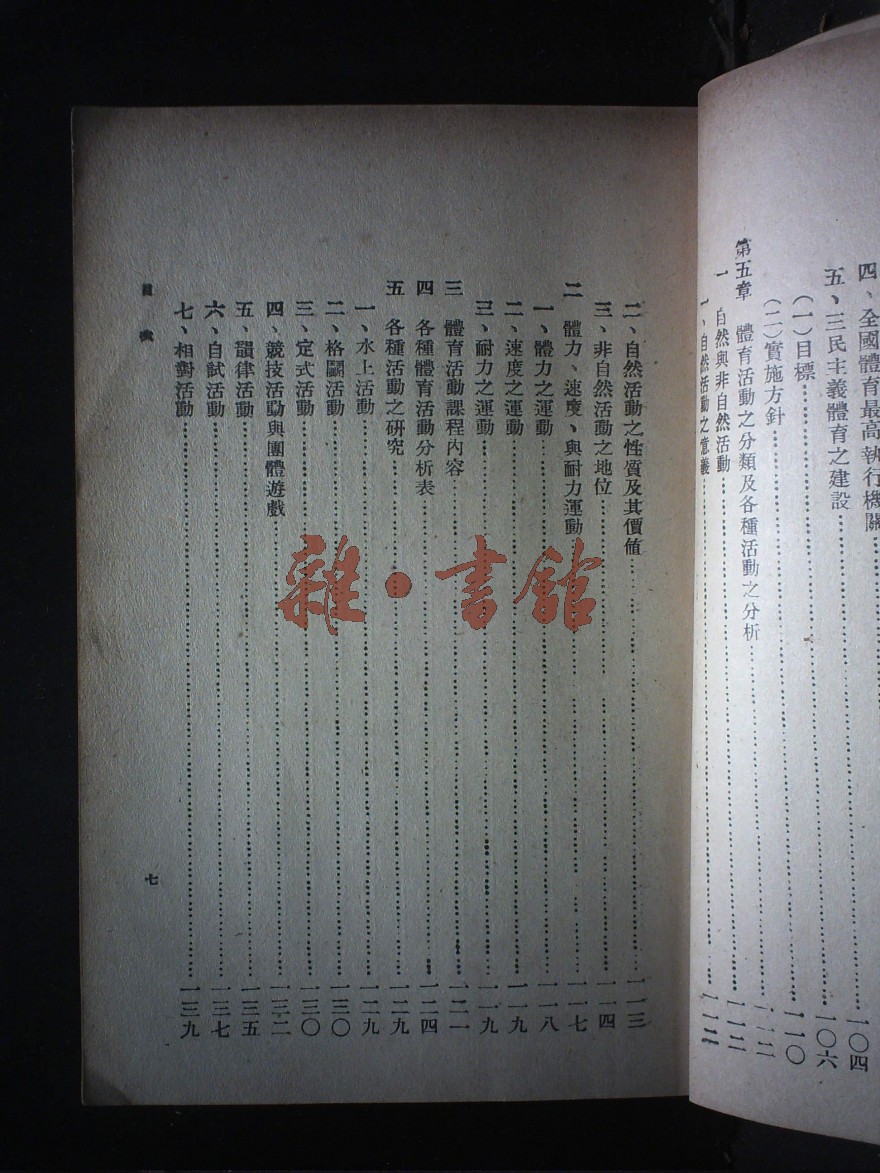 四、全國體育最高執行機關……一〇四
五、三民主義體育之建設……一〇六
（一）目標……一一〇
（二）實施方針……一一二
第五章　體育活動之分類及各種活動之分析
一　自然與非自然活動……一一二
一、自然活動之意義……一一二
二、自然活動之性質及其價值……一一三
三、非自然活動之地位……一一四
二　體力、速度、與耐力運動……一一七
一、體力之運動……一一八
二、速度之運動……一一九
三、耐力之運動……一一九
三　體育活動課程內容……一二一
四　各種體育活動分析表……一二四
五　各種活動之研究……一二九
一、水上活動……一二九
二、格鬭活動……一三〇
三、定式活動……一三〇
四、競技活動與團體遊戲……一三二
五、韻律活動……一三五
六、自試活動……一三七
七、相對活動……一三九
目　次
七
雜·書館